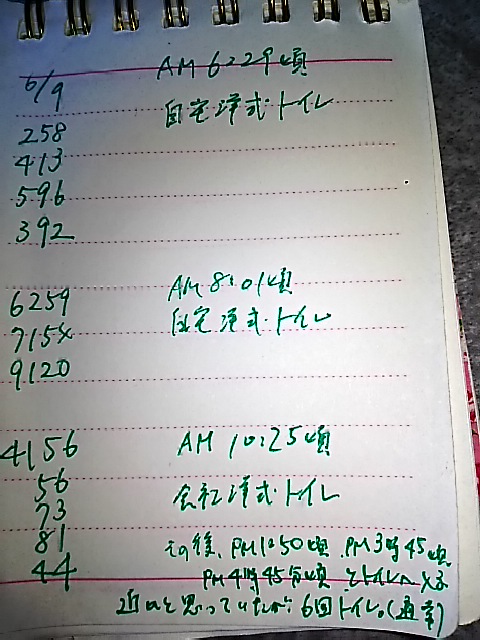 6/9 AM 6:29頃
自宅洋式トイレ
258
413
596
392
6259 AM 8:01頃
715 自宅洋式トイレ
9120
4156 AM 10:25頃
56 会社洋式トイレ
73
81 その後、PM1:50頃、PM3時45頃
44 PM4時45分頃 とトイレへ
近いと思っていたが、6回トイレ。(通常)